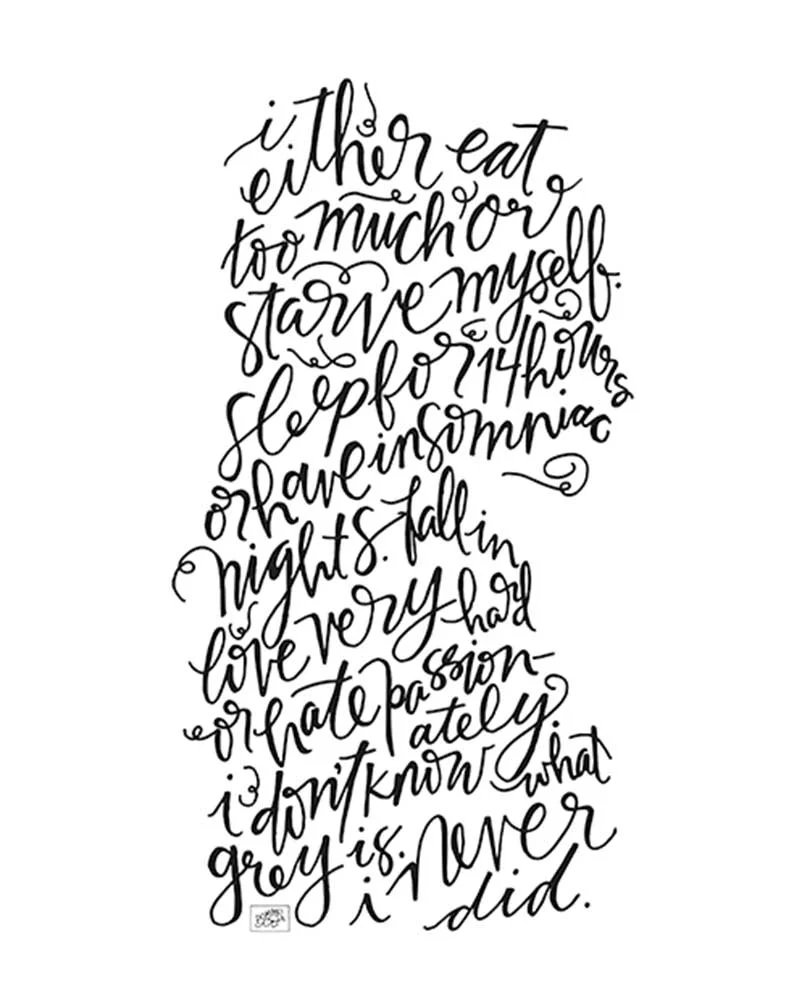 i
either eat
too much or
starve myself.
sleep for 14 hours
or have insomniac
nights. fall in
love very hard
or hate passion-
ately.
i don't know what
grey is. i never
did.